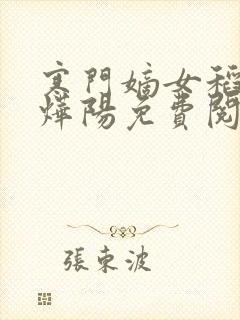 寒門嫡女稻
燁陽免費閱
張東波